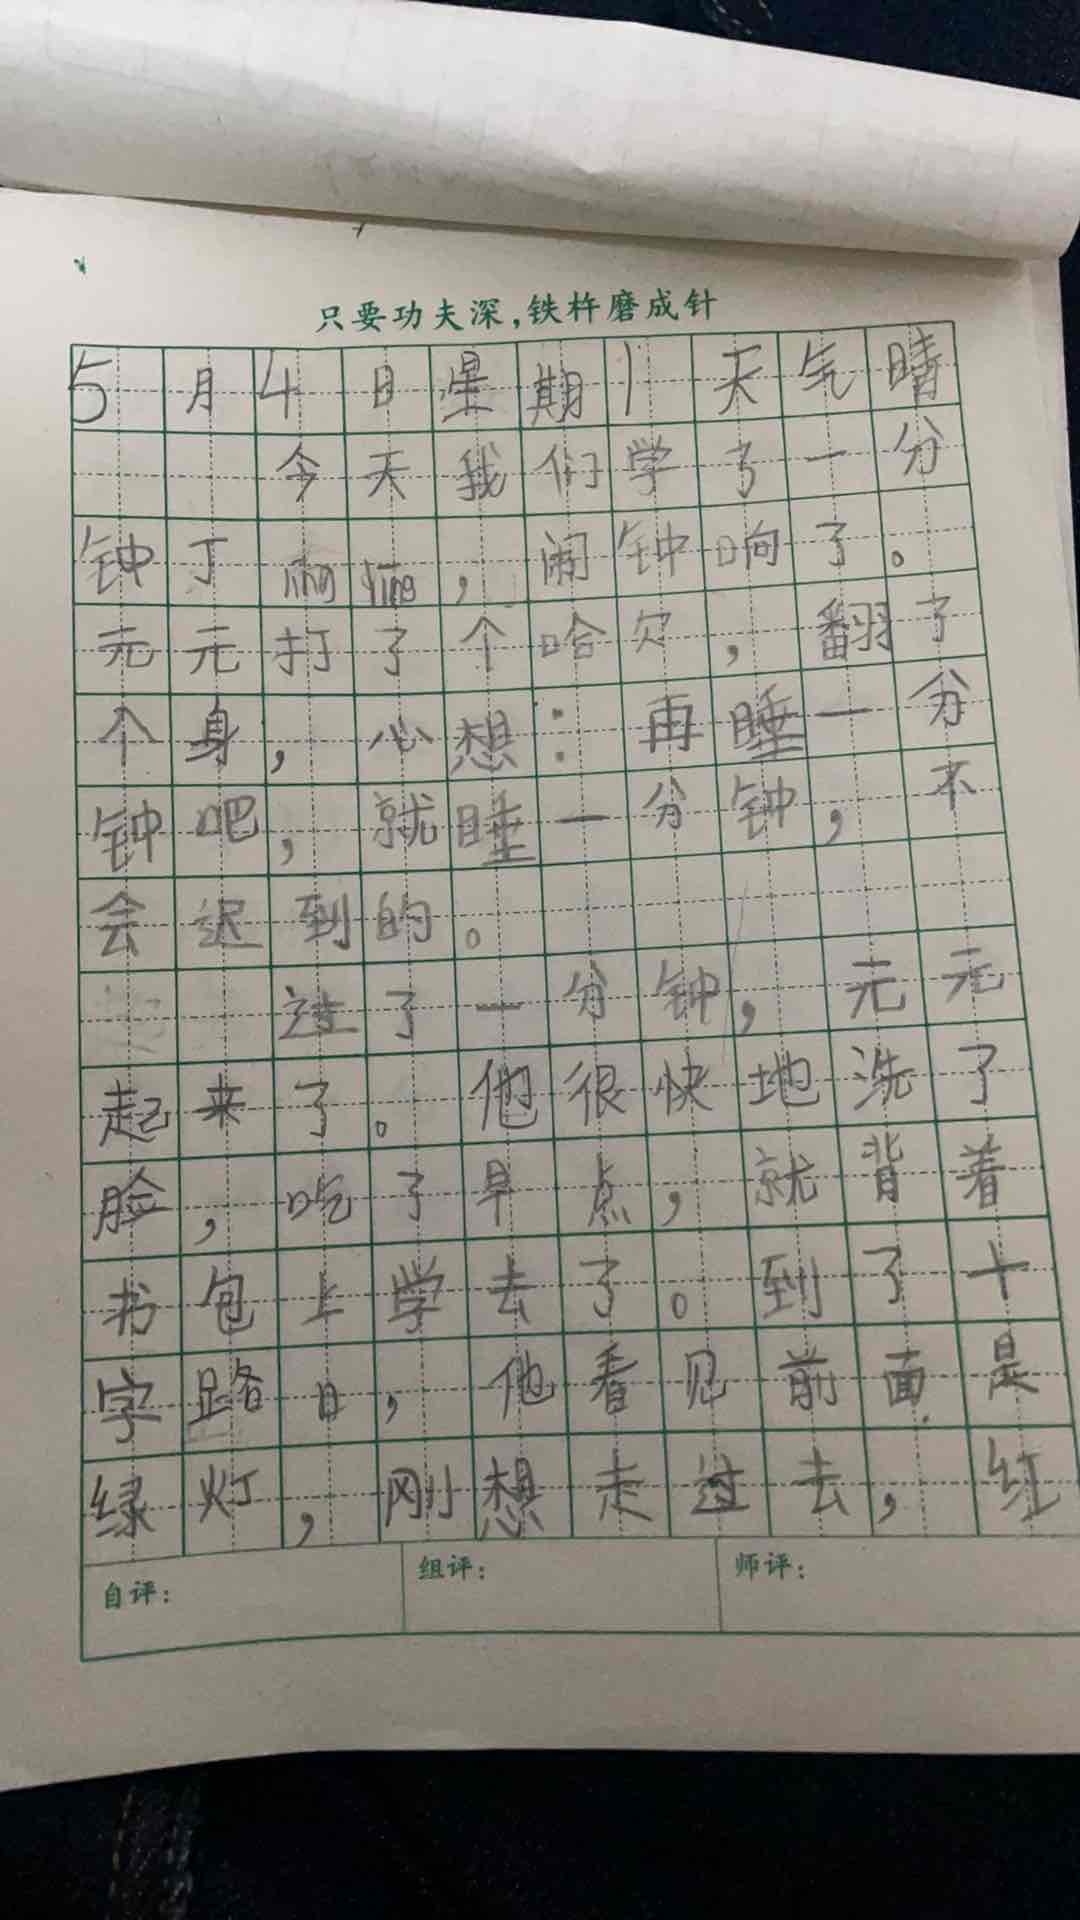 只要功夫深,铁杵磨成针
5月4日星期1天气晴
今天我们学了一分
钟丁líng líng,闹钟响了。
元元打了个哈欠,翻了
个身,心想:再睡一分
钟吧,就睡一分钟,不
会迟到的。
过了一分钟,元元
起来了。他很快地洗了
脸,吃了早点,就背着
书包上学去了。到了十
字路口,他看见前面是
绿灯,刚想走过去,红
自评:
组评:
师评: